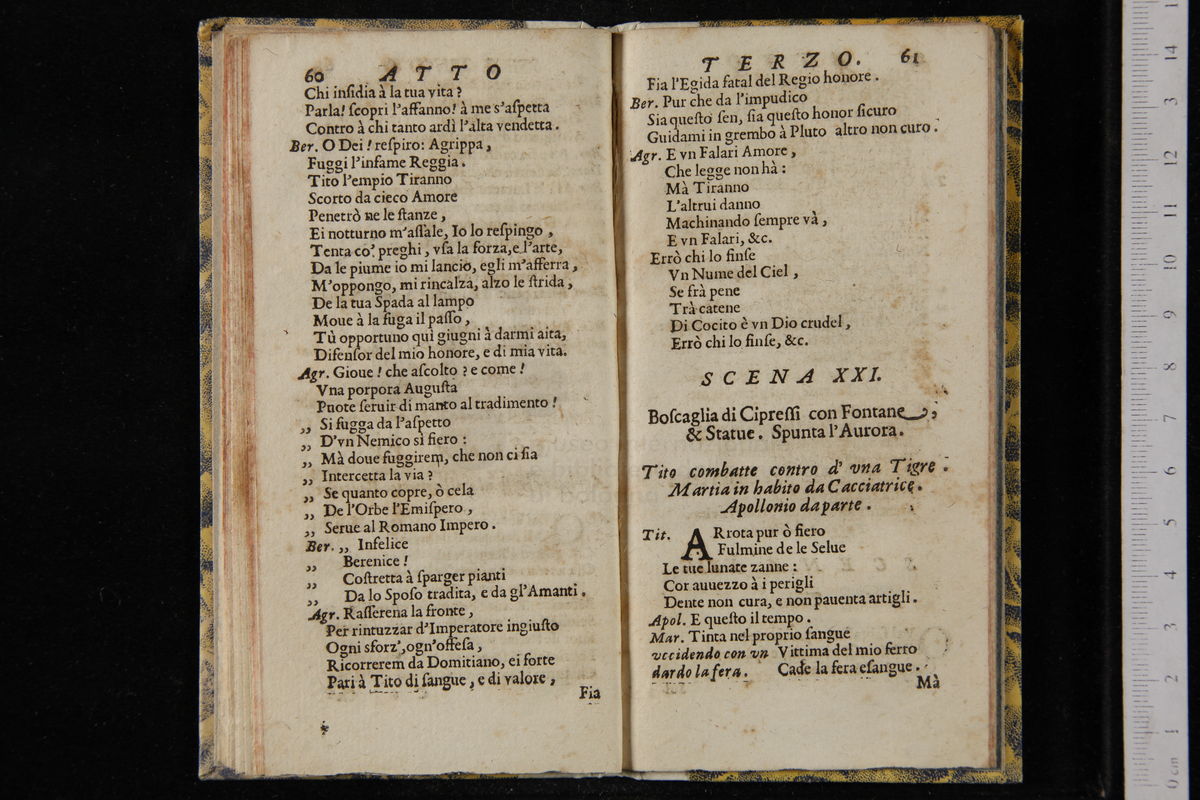 60 ATTO
Chi inſidia à la tua vita?
Parla! ſcopri l'affanno! à me s'aſpetta
Contro à chi tanto ardì l'alta vendetta.
Ber. O Dei! reſpiro: Agrippa,
Fuggi l'infame Reggia.
Tito l'empio Tiranno
Scorto da cieco Amore
Penetrò ne le ſtanze,
Ei notturno m'aſſale, Io lo reſpingo,
Tenta co' preghi, vſa la forza, e l'arte,
Da le piume io mi lancio, egli m'afferra,
M'oppongo, mi rincalza, alzo le ſtrida,
De la tua Spada al lampo
Moue à la fuga il paſſo,
Tù opportuno quì giugni à darmi aita,
Difenſor del mio honore, e di mia vita.
Agr. Gioue! che aſcolto? e come!
Vna porpora Auguſta
Puote ſeruir di manto al tradimento!
„ Si fugga da l'aſpetto
„ D'vn Nemico sì fiero:
„ Mà doue fuggirem, che non ci ſia
„ Intercetta la via?
„ Se quanto copre, ò cela
„ De l'Orbe l'Emiſpero,
„ Serue al Romano Impero.
Ber. „ Infelice
„ Berenice!
„ Coſtretta à ſparger pianti
„ Da lo Spoſo tradita, e da gl'Amanti.
Agr. Raſſerena la fronte,
Per rintuzzar d'Imperatore ingiuſto
Ogni sforz', ogn'offeſa,
Ricorrerem da Domitiano, ei forte
Pari à Tito di ſangue, e di valore,
Fia
TERZO. 61
Fia l'Egida fatal del Regio honore.
Ber. Pur che da l'impudico
Sia queſto ſen, ſia queſto honor ſicuro
Guidami in grembo à Pluto altro non curo.
Agr. E vn Falari Amore,
Che legge non hà:
Mà Tiranno
L'altrui danno
Machinando ſempre và,
E vn Falari, &c.
Errò chi lo finſe
Vn Nume del Ciel,
Se frà pene
Trà catene
Di Cocito è vn Dio crudel,
Errò chi lo finſe, &c.
SCENA XXI.
Boſcaglia di Cipreſſi con Fontane,
& Statue. Spunta l'Aurora.
Tito combatte contro d' vna Tigre.
Martia in habito da Cacciatrice.
Apollonio da parte.
Tit. ARrota pur ò fiero
Fulmine de le Selue
Le tue lunate zanne:
Cor auuezzo à i perigli
Dente non cura, e non pauenta artigli.
Apol. E queſto il tempo.
Mar. Tinta nel proprio ſangue
vccidendo con vn Vittima del mio ferro
dardo la fera. Cade la fera eſangue.
Mà
14
13
12
11
10
9
8
7
6
5
4
3
2
1
0 cm